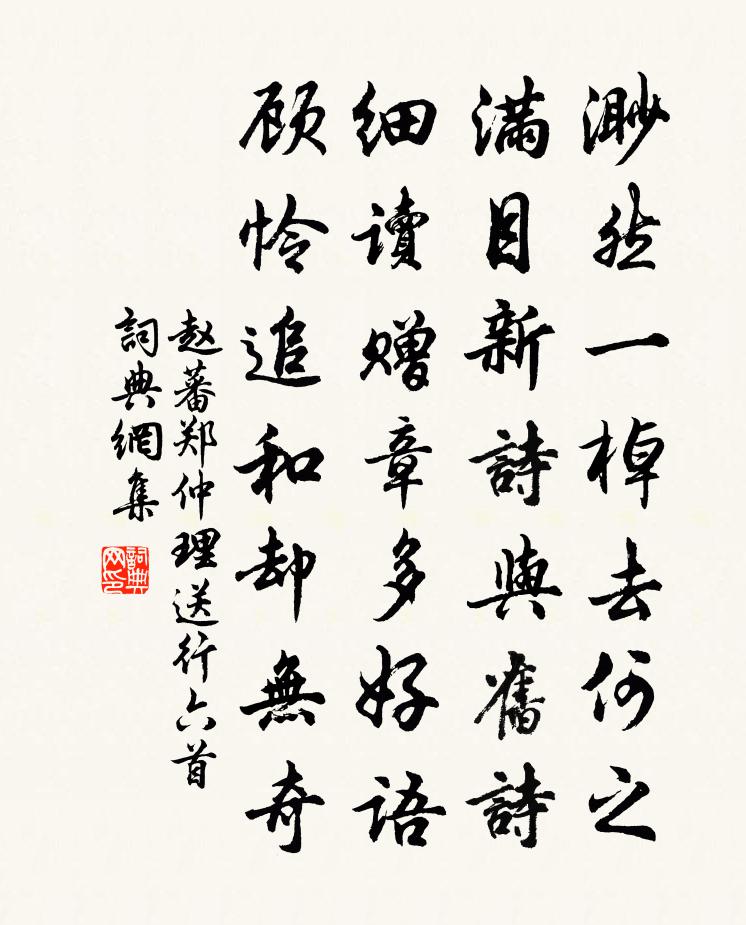 渺然一棹去何之
滿目新詩與舊詩
细讀赠章多好语
顾怜追和却無奇
赵蕃郑仲理送行六首
詞典網集
詞典网印